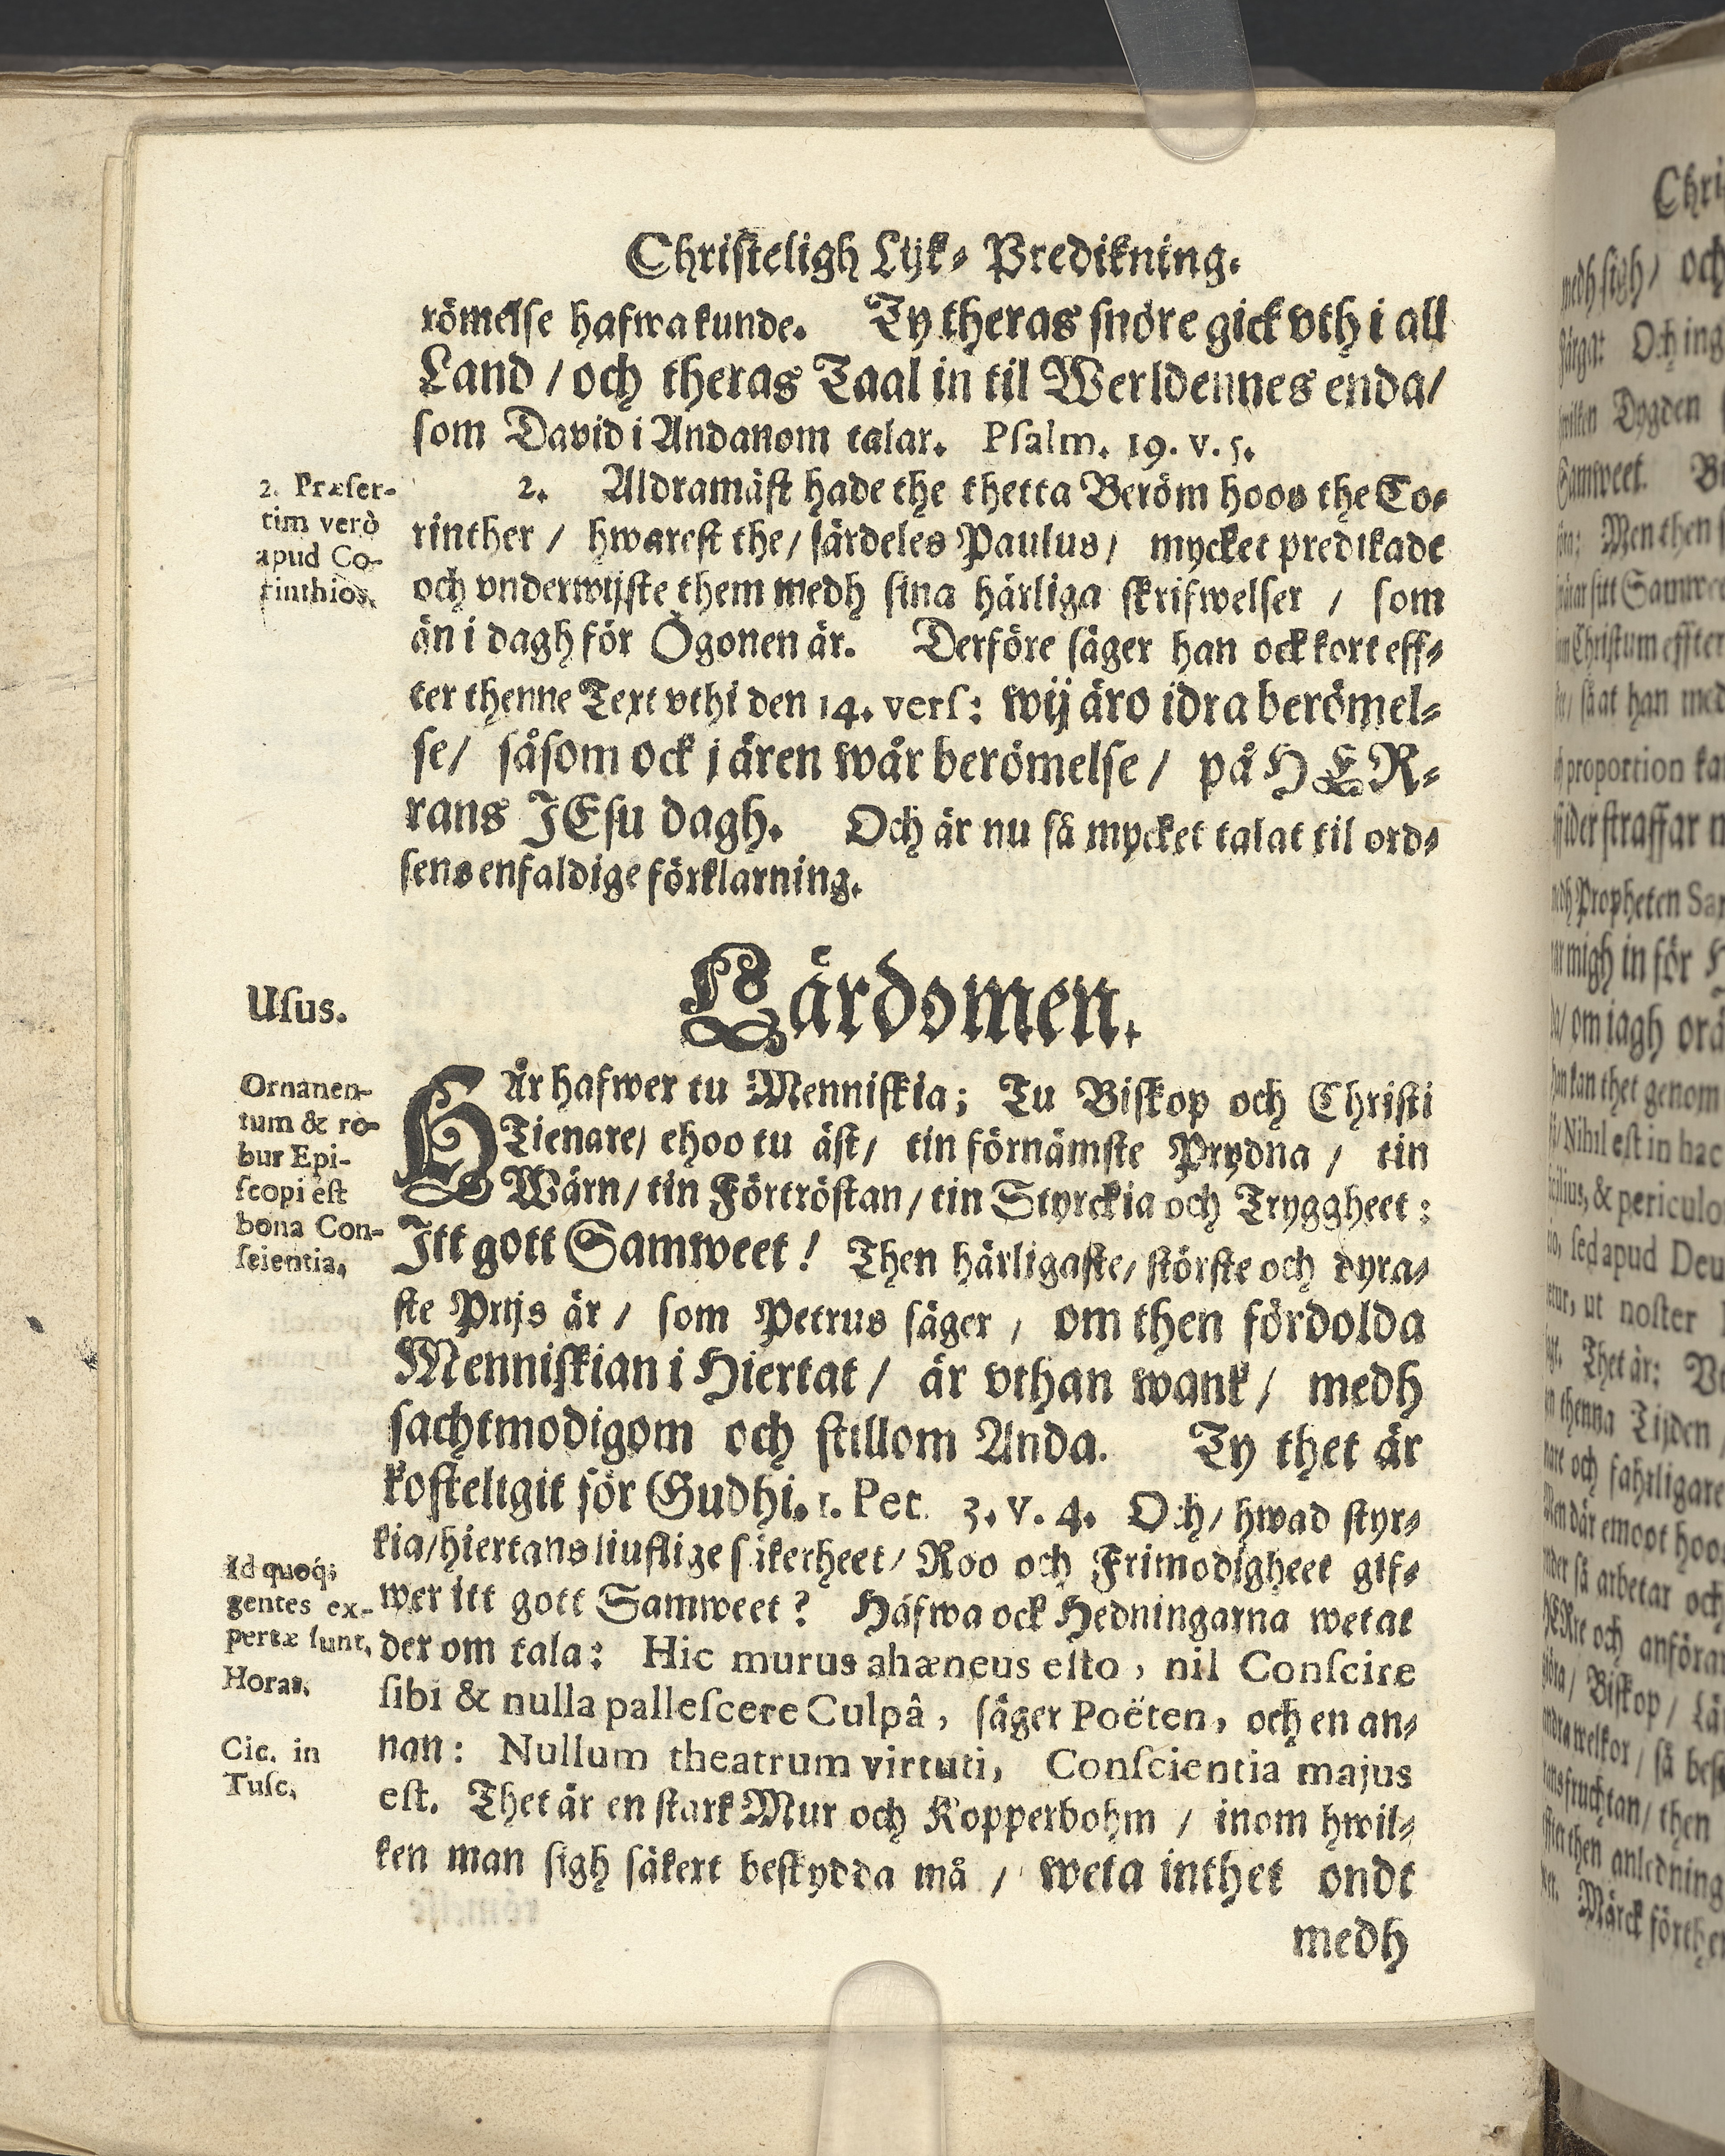 Christeligh Lijk- Predikning.
römelse hafwa kunde. Ty theras snöre gick vth i all
Land / och theras Taal in til Werldennes enda/
som David i Andanom talar. Psalm. 19. v. 5.
2. Aldramäst hade the thetta Beröm hoos the Co-
rinther / hwarest the/ särdeles Paulus/ mycket predikade
och vnderwijste them medh sina härliga skrifwelser / som
än i dagh för Ögonen är. Derföre säger han ock kort eff-
ter thenne Text vthi den 14. vers: wij äro idra berömel-
se/ såsom ock j ären wår berömelse / på HER-
rans JEsu dagh. Och är nu så mycket talat til ord-
sens enfaldige förklarning.
2. Præser-
tim verò
apud Co-
rinthios.
Lärdomen.
Usus.
HÄr hafwer tu Menniskia; Tu Biskop och Christi
Tienare/ ehoo tu äst/ tin förnämste Prydna / tin
Wärn/ tin Förtröstan/ tin Styrckia och Tryggheet:
Itt gott Samweet! Then härligaste/ störste och dyra-
ste Prijs är / som Petrus säger / om then fördolda
Menniskian i Hiertat / är vthan wank / medh
sachtmodigom och stillom Anda. Ty thet är
kosteligit för Gudhi. 1. Pet. 3. v. 4. Och/ hwad styr-
kia/hiertans liuflige säkerheet/ Roo och Frimodigheet gif-
wer itt gott Samweet? Hafwa ock Hedningarna wetat
der om tala: Hic murus ahæneus esto, nil Conscire
sibi & nulla pallescere Culpâ, säger Poëten, och en an-
nan: Nullum theatrum virtuti, Conscientia majus
est. Thet är en stark Mur och Kopperbohm / inom hwil-
ken man sigh säkert beskydda må / weta inthet ondt
medh
Ornanen-
tum & ro-
bur Epi-
scopi est
bona Con-
scientia.
Id quoq;
gentes ex-
pertæ sunt.
Horat.
Cic. in
Tusc.